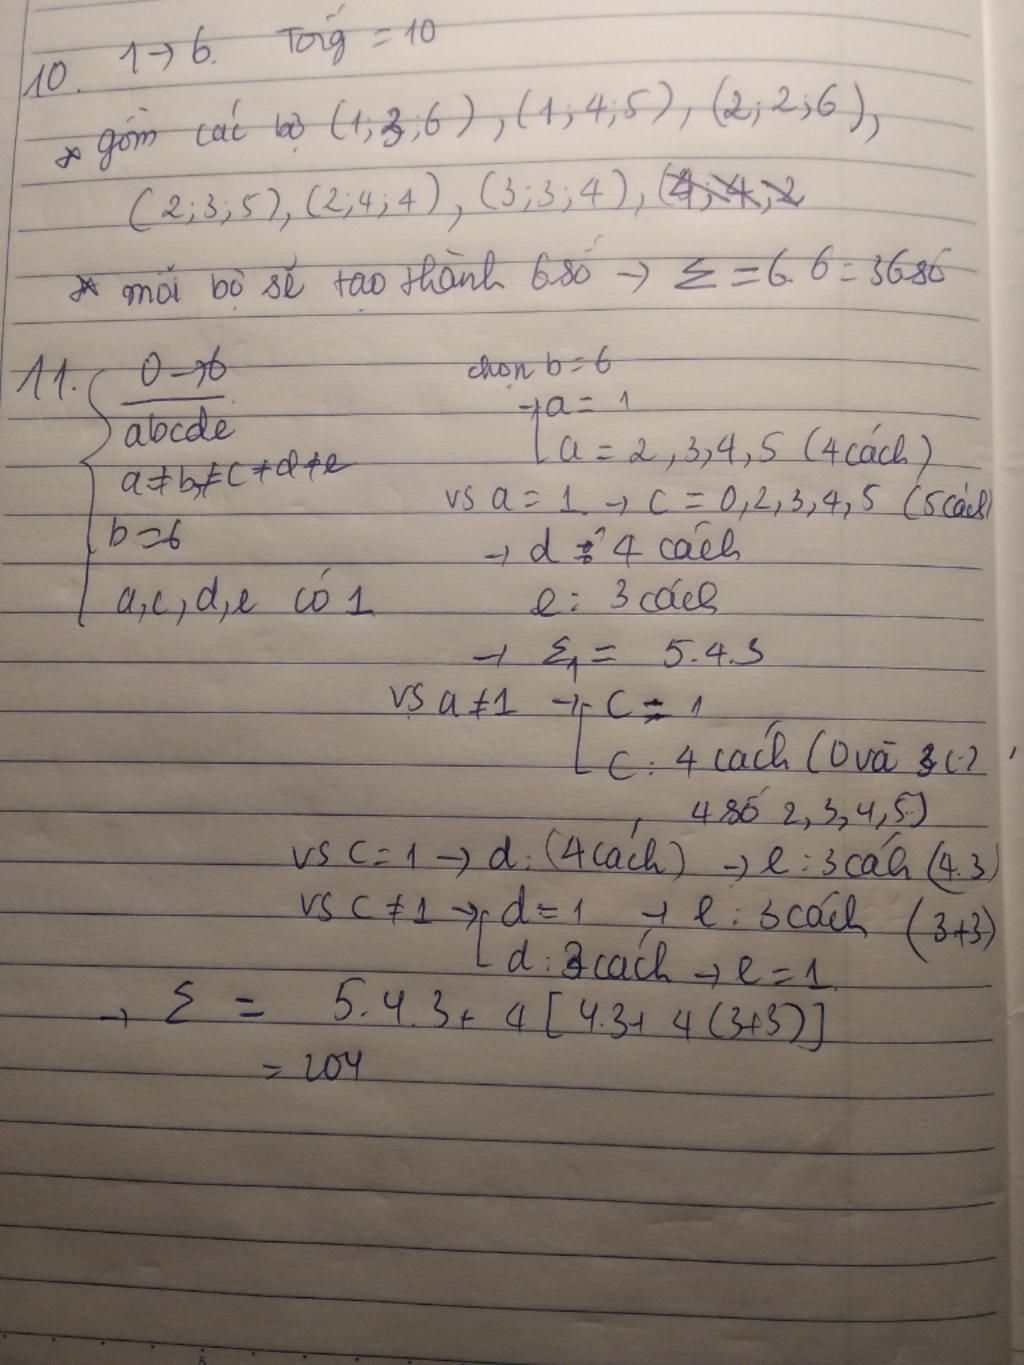 10. 1→6. Tổng = 10
* gồm các bộ (1;3;6), (1;4;5), (2;2;6),
(2;3;5), (2;4;4), (3;3;4), (4;4;2
* mỗi bộ sẽ tạo thành 6 số → Σ = 6.6 = 36 số
11. 0→6
abcde
a≠b≠c≠d≠e
b=6
a,c,d,e có 1
chọn b=6
→ a = 1
a = 2,3,4,5 (4 cách)
vs a = 1 → c = 0,2,3,4,5 (5 cách)
→ d : 4 cách
e : 3 cách
→ Σ₁ = 5.4.3
vs a ≠ 1 → c = 1
c : 4 cách (0 và 3
4 số 2,3,4,5)
vs c = 1 → d : (4 cách) → e : 3 cách (4.3)
vs c ≠ 1 → d = 1 → e : 3 cách (3+3)
d : 3 cách → e = 1
→ Σ = 5.4.3 + 4[4.3 + 4(3+3)]
= 204